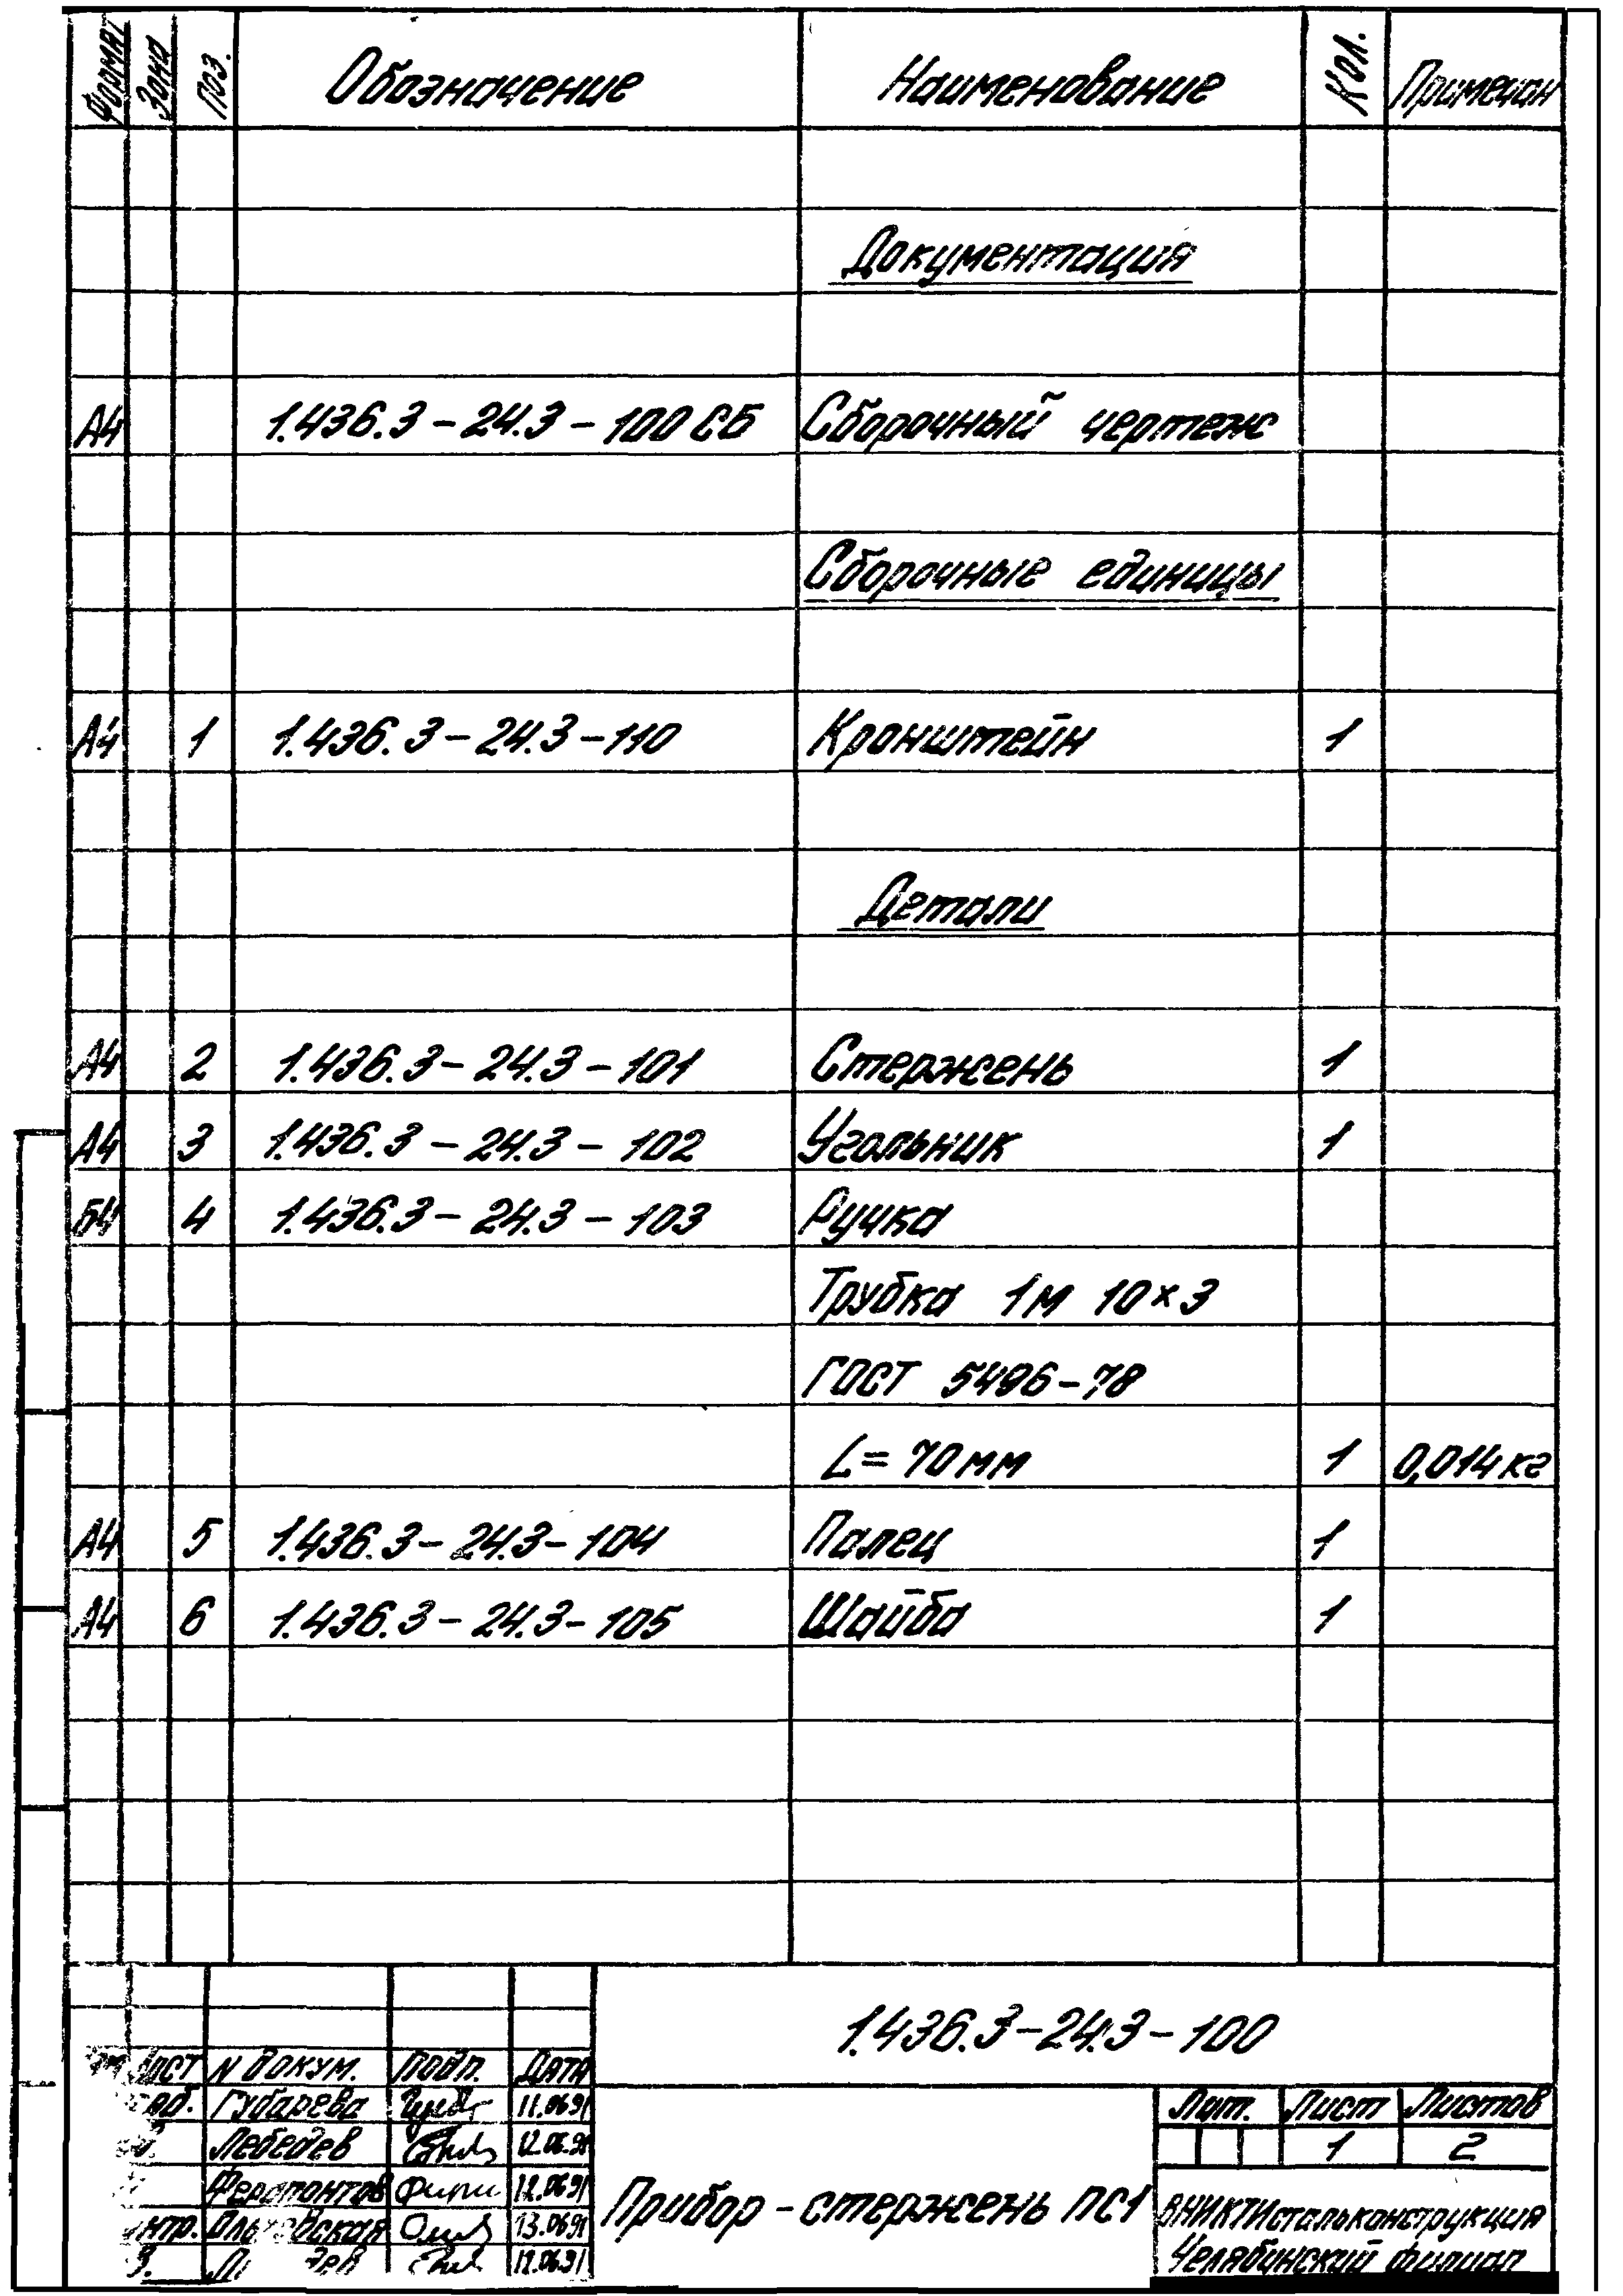 Формат Зона Поз. Обозначение Наименование Кол. Примечан
Документация
А4 1.436.3-24.3-100 СБ Сборочный чертеж
Сборочные единицы
А4 1 1.436.3-24.3-110 Кронштейн 1
Детали
А4 2 1.436.3-24.3-101 Стержень 1
А4 3 1.436.3-24.3-102 Угольник 1
Б4 4 1.436.3-24.3-103 Ручка
Трубка 1м 10×3
ГОСТ 5496-78
L=70мм 1 0,014кг
А4 5 1.436.3-24.3-104 Палец 1
А4 6 1.436.3-24.3-105 Шайба 1
1.436.3-24.3-100
N докум. Подп. Дата
Губарева 11.06.91
Лебедев 12.06.91
Ферапонтов 12.06.91
13.06.91
12.06.91
Прибор-стержень ПС1
Лит. Лист Листов
1 2
ВНИКТИстальконструкция
Челябинский филиал